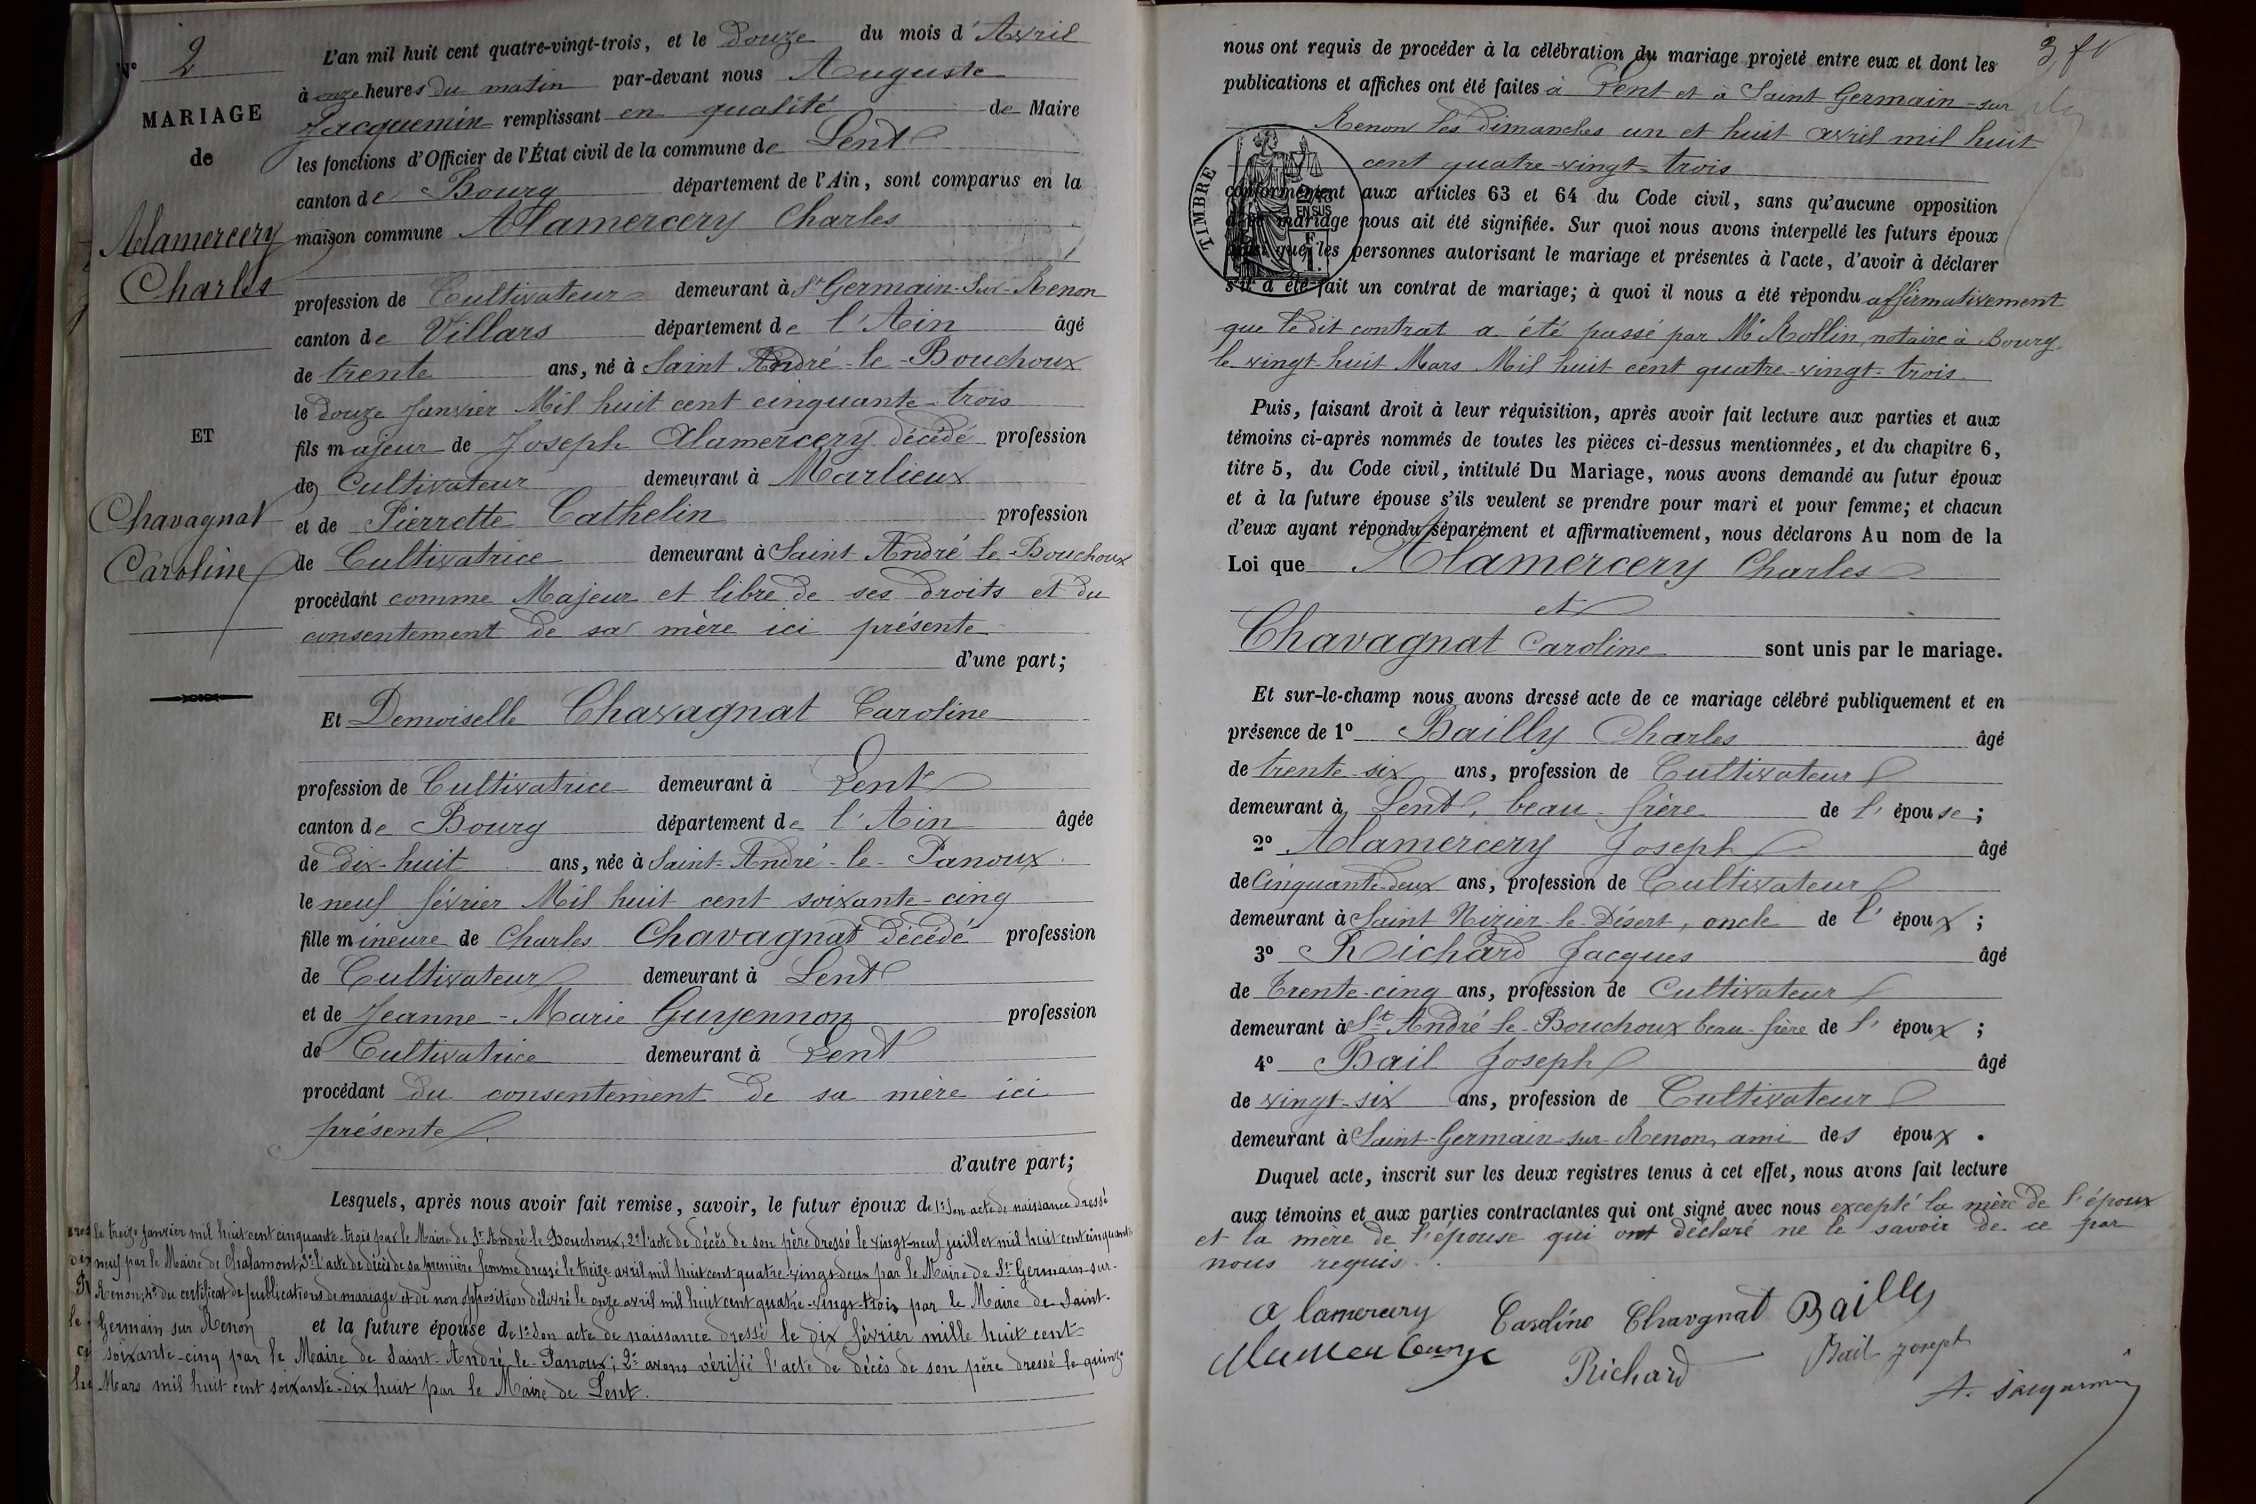 N° 2
MARIAGE
de
Alamercery
Charles
ET
Chavagnat
Caroline
L'an mil huit cent quatre-vingt-trois, et le douze du mois d'Avril
à onze heures du matin par-devant nous Auguste
Jacquemin remplissant en qualité de Maire
les fonctions d'Officier de l'État civil de la commune de Lent
canton de Bourg département de l'Ain, sont comparus en la
maison commune Alamercery Charles
profession de Cultivateur demeurant à St Germain-Sur-Renon
canton de Villars département de l'Ain âgé
de trente ans, né à Saint André-le-Bouchoux
le douze Janvier Mil huit cent cinquante-trois
fils majeur de Joseph Alamercery décédé profession
de Cultivateur demeurant à Marlieux
et de Pierrette Cathelin profession
de Cultivatrice demeurant à Saint André le-Bouchoux
procédant comme Majeur et libre de ses droits et du
consentement de sa mère ici présente
d'une part;
Et Demoiselle Chavagnat Caroline
profession de Cultivatrice demeurant à Lent
canton de Bourg département de l'Ain âgée
de dix-huit ans, née à Saint-André-le-Panoux
le neuf février Mil huit cent soixante-cinq
fille mineure de Charles Chavagnat décédé profession
de Cultivateur demeurant à Lent
et de Jeanne-Marie Guyennon profession
de Cultivatrice demeurant à Lent
procédant du consentement de sa mère ici
présente.
d'autre part;
Lesquels, après nous avoir fait remise, savoir, le futur époux de 1° Son acte de naissance dressé
le treize janvier mil huit cent cinquante-trois par le Maire de St André le Bouchoux, 2° l'acte de décès de son père dressé le vingt-neuf juillet mil huit cent cinquante
neuf par le Maire de Chalamont, 3° l'acte de décès de sa première femme dressé le treize avril mil huit cent quatre-vingt-deux par le Maire de St Germain-sur-
Renon, 4° du certificat de publications de mariage et de non opposition délivré le onze avril mil huit cent quatre-vingt-trois par le Maire de Saint-
Germain sur Renon et la future épouse de 1° Son acte de naissance dressé le dix février mille huit cent-
soixante-cinq par le Maire de Saint-André-le-Panoux; 2° avons vérifié l'acte de décès de son père dressé le quinze
Mars mil huit cent soixante-dix huit par le Maire de Lent.
nous ont requis de procéder à la célébration du mariage projeté entre eux et dont les
publications et affiches ont été faites à Lent et à Saint Germain-sur
Renon les dimanches un et huit avril mil huit
cent quatre-vingt-trois
TIMBRE
EN SUS
conformément aux articles 63 et 64 du Code civil, sans qu'aucune opposition
mariage nous ait été signifiée. Sur quoi nous avons interpellé les futurs époux
ainsi que les personnes autorisant le mariage et présentes à l'acte, d'avoir à déclarer
s'il a été fait un contrat de mariage; à quoi il nous a été répondu affirmativement
que ledit contrat a été passé par Me Rollin, notaire à Bourg,
le vingt-huit Mars Mil huit cent quatre-vingt-trois.
Puis, faisant droit à leur réquisition, après avoir fait lecture aux parties et aux
témoins ci-après nommés de toutes les pièces ci-dessus mentionnées, et du chapitre 6,
titre 5, du Code civil, intitulé Du Mariage, nous avons demandé au futur époux
et à la future épouse s'ils veulent se prendre pour mari et pour femme; et chacun
d'eux ayant répondu séparément et affirmativement, nous déclarons Au nom de la
Loi que Alamercery Charles
et
Chavagnat Caroline sont unis par le mariage.
Et sur-le-champ nous avons dressé acte de ce mariage célébré publiquement et en
présence de 1° Bailly Charles âgé
de trente-six ans, profession de Cultivateur
demeurant à Lent, beau-frère de l'épouse;
2° Alamercery Joseph âgé
de Cinquante-deux ans, profession de Cultivateur
demeurant à Saint Nizier-le-Désert, oncle de l'époux;
3° Richard Jacques âgé
de Trente-cinq ans, profession de Cultivateur
demeurant à St André le-Bouchoux beau-frère de l'époux;
4° Bail Joseph âgé
de vingt-six ans, profession de Cultivateur
demeurant à Saint-Germain-sur-Renon, ami des époux.
Duquel acte, inscrit sur les deux registres tenus à cet effet, nous avons fait lecture
aux témoins et aux parties contractantes qui ont signé avec nous excepté la mère de l'époux
et la mère de l'épouse qui ont déclaré ne le savoir de ce par
nous requis.
Alamercery Caroline Chavagnat Bailly
Richard Bail Joseph
A. Jacquemin